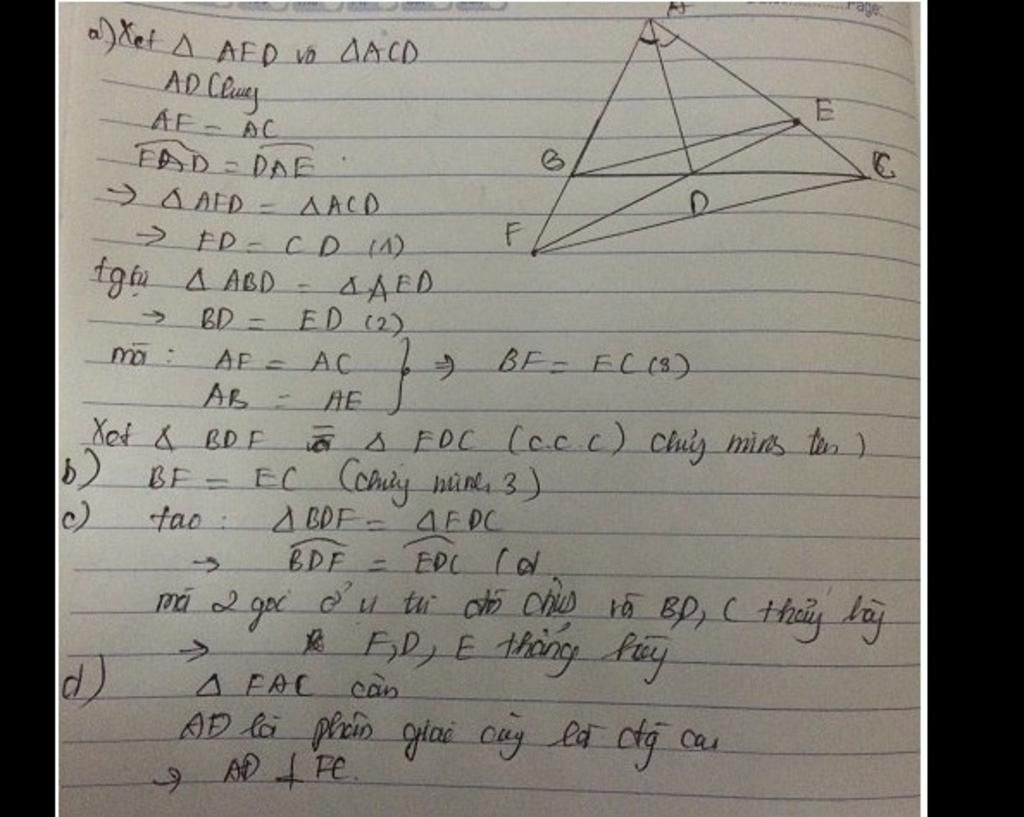 a) Xet Δ AFD và ΔACD
AD chung
AF = AC
FAD = DAE
→ Δ AFD = ΔACD
→ FD = CD (1)
tgtự Δ ABD = ΔAED
→ BD = ED (2)
mà : AF = AC } ⇒ BF = EC (3)
AB = AE
Xet Δ BDF = Δ EDC (c.c.c) chứng minh trên )
b) BF = EC (chứng minh 3)
c) tao : ΔBDF = ΔEDC
→ BDF = EDC (
mà 2 góc ở vị trí đối đỉnh và BD, C thẳng hàng
→ F, D, E thẳng hàng
d) Δ FAC cân
AD là phân giác cũng là đg cao
→ AD ⊥ FC.
A
B
C
D
E
F
Page: